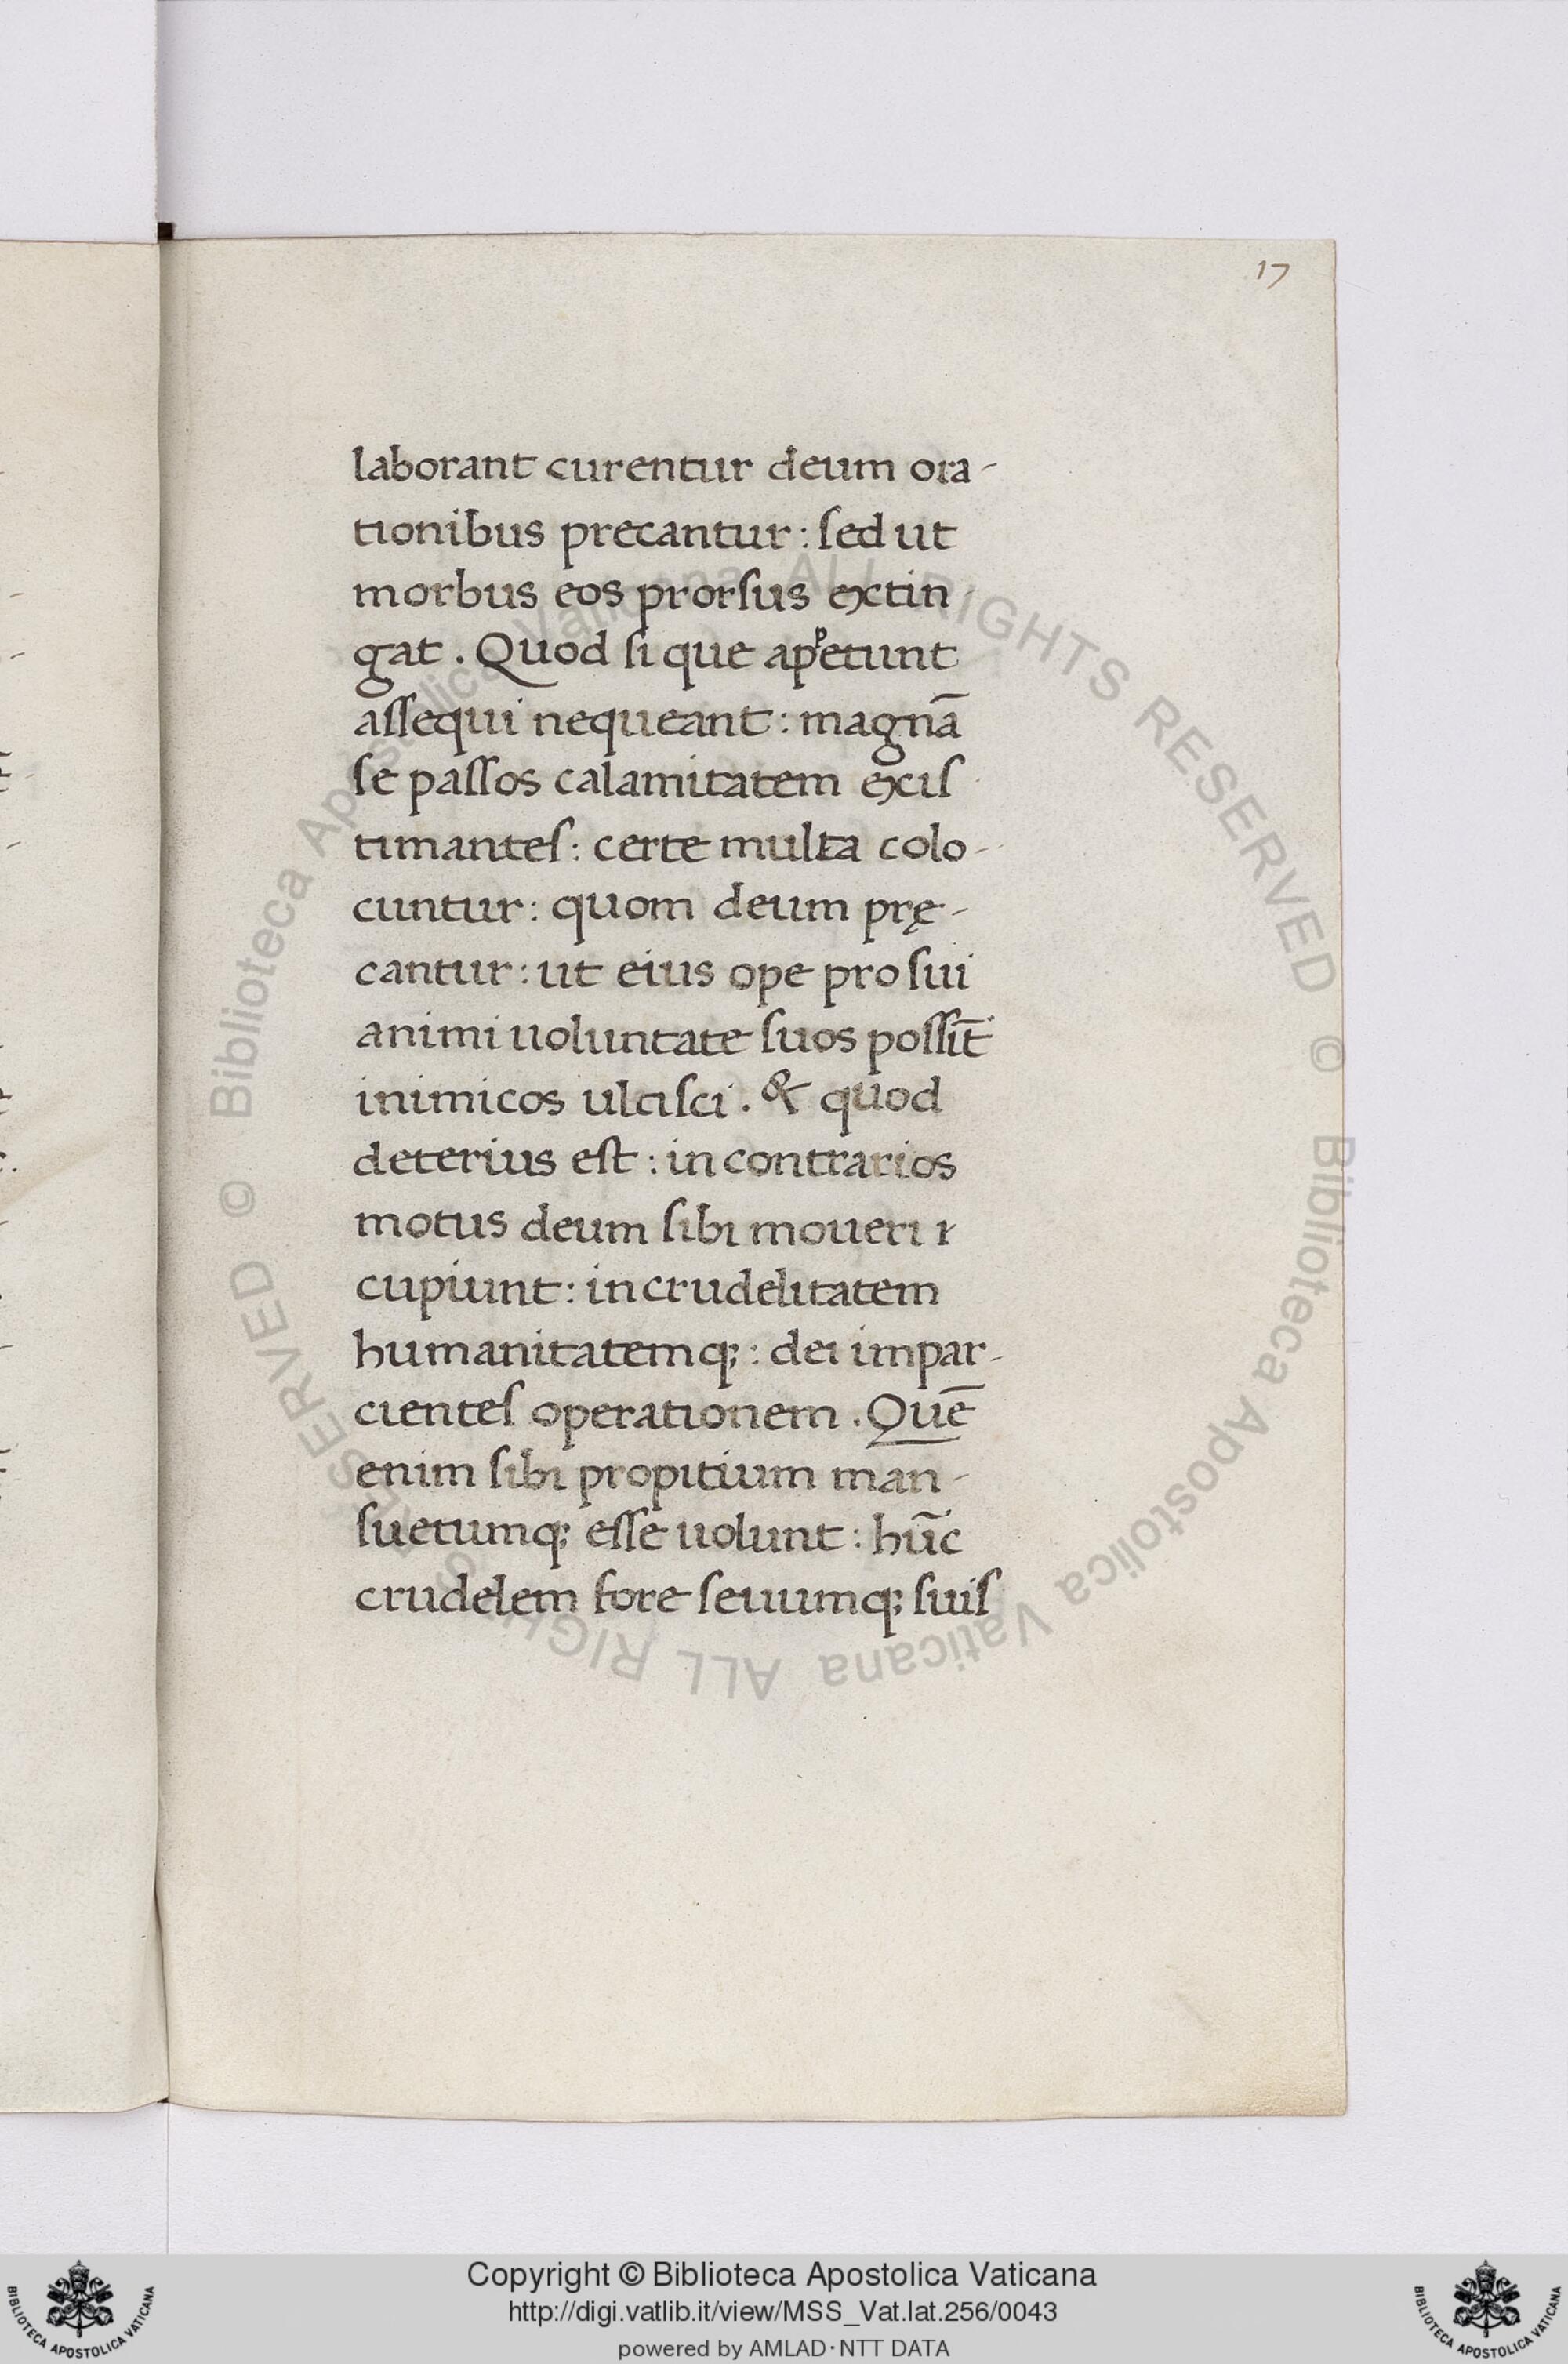 17
laborant curentur deum ora-
tionibus precantur : sed ut
morbus eos prorsus extin
gat . Quod si que appetunt
assequi nequeant : magnā
se passos calamitatem exis
timantes : certe multa colo-
cuntur : quom deum prę-
cantur : ut eius ope pro sui
animi uoluntate suos possīt
inimicos ulcisci . & quod
deterius est : in contrarios
motus deum sibi moueri
cupiunt : in crudelitatem
humanitatemq; : dei impar-
cientes operationem . Quē
enim sibi propitium man-
suetumq; esse uolunt : hūc
crudelem fore seuumq; suis
© Biblioteca Apostolica Vaticana ALL RIGHTS RESERVED © Biblioteca Apostolica Vaticana ALL RIGHTS RESERVED
Copyright © Biblioteca Apostolica Vaticana
http://digi.vatlib.it/view/MSS_Vat.lat.256/0043
powered by AMLAD·NTT DATA
BIBLIOTECA APOSTOLICA VATICANA
BIBLIOTECA APOSTOLICA VATICANA